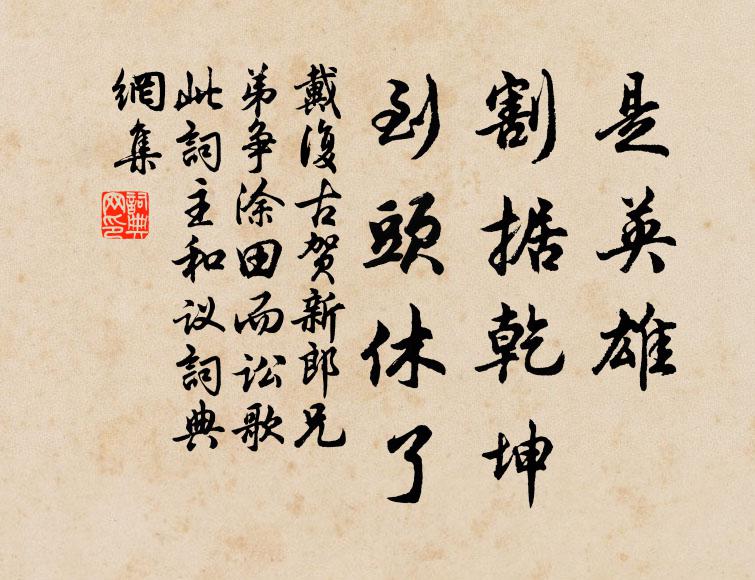 是英雄
割据乾坤
到頭休了
戴復古贺新郎兄
弟争涂田而讼歌
此詞主和议詞典
網集
詞典
网印